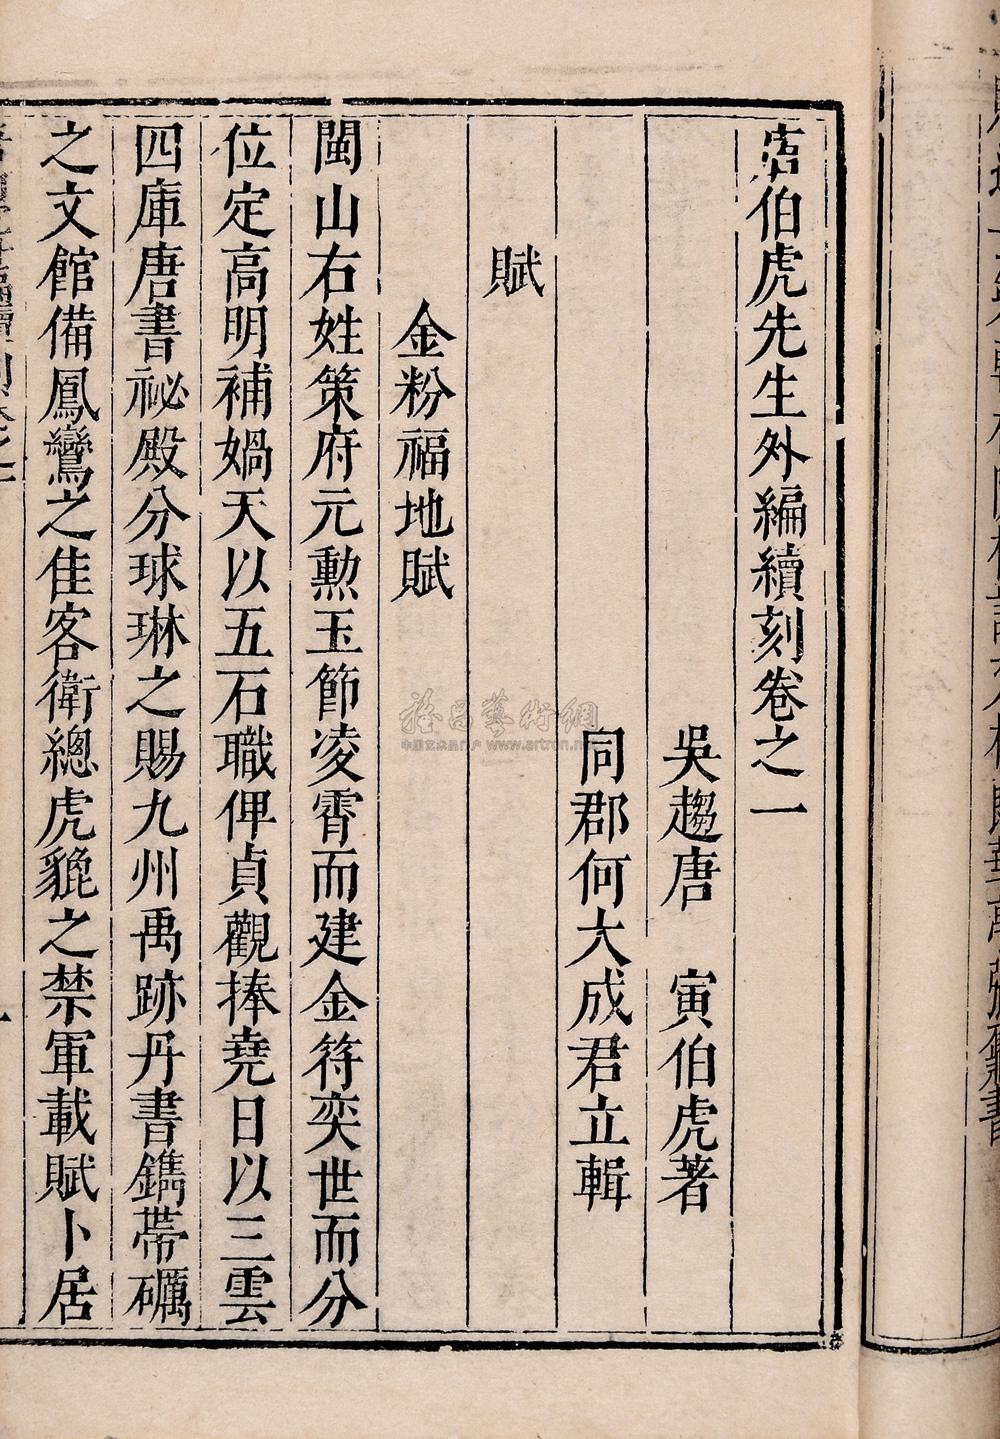 唐伯虎先生外編續刻卷之一
吳趨唐　寅伯虎著
同郡何大成君立輯
賦
金粉福地賦
閩山右姓策府元勳玉節凌霄而建金符奕世而分
位定高明補媧天以五石職俾貞觀捧堯日以三雲
四庫唐書祕殿分球琳之賜九州禹跡丹書鐫帶礪
之文館備鳳鸞之佳客衛總虎貔之禁軍載賦卜居
中国艺术品门户 www.artron.net